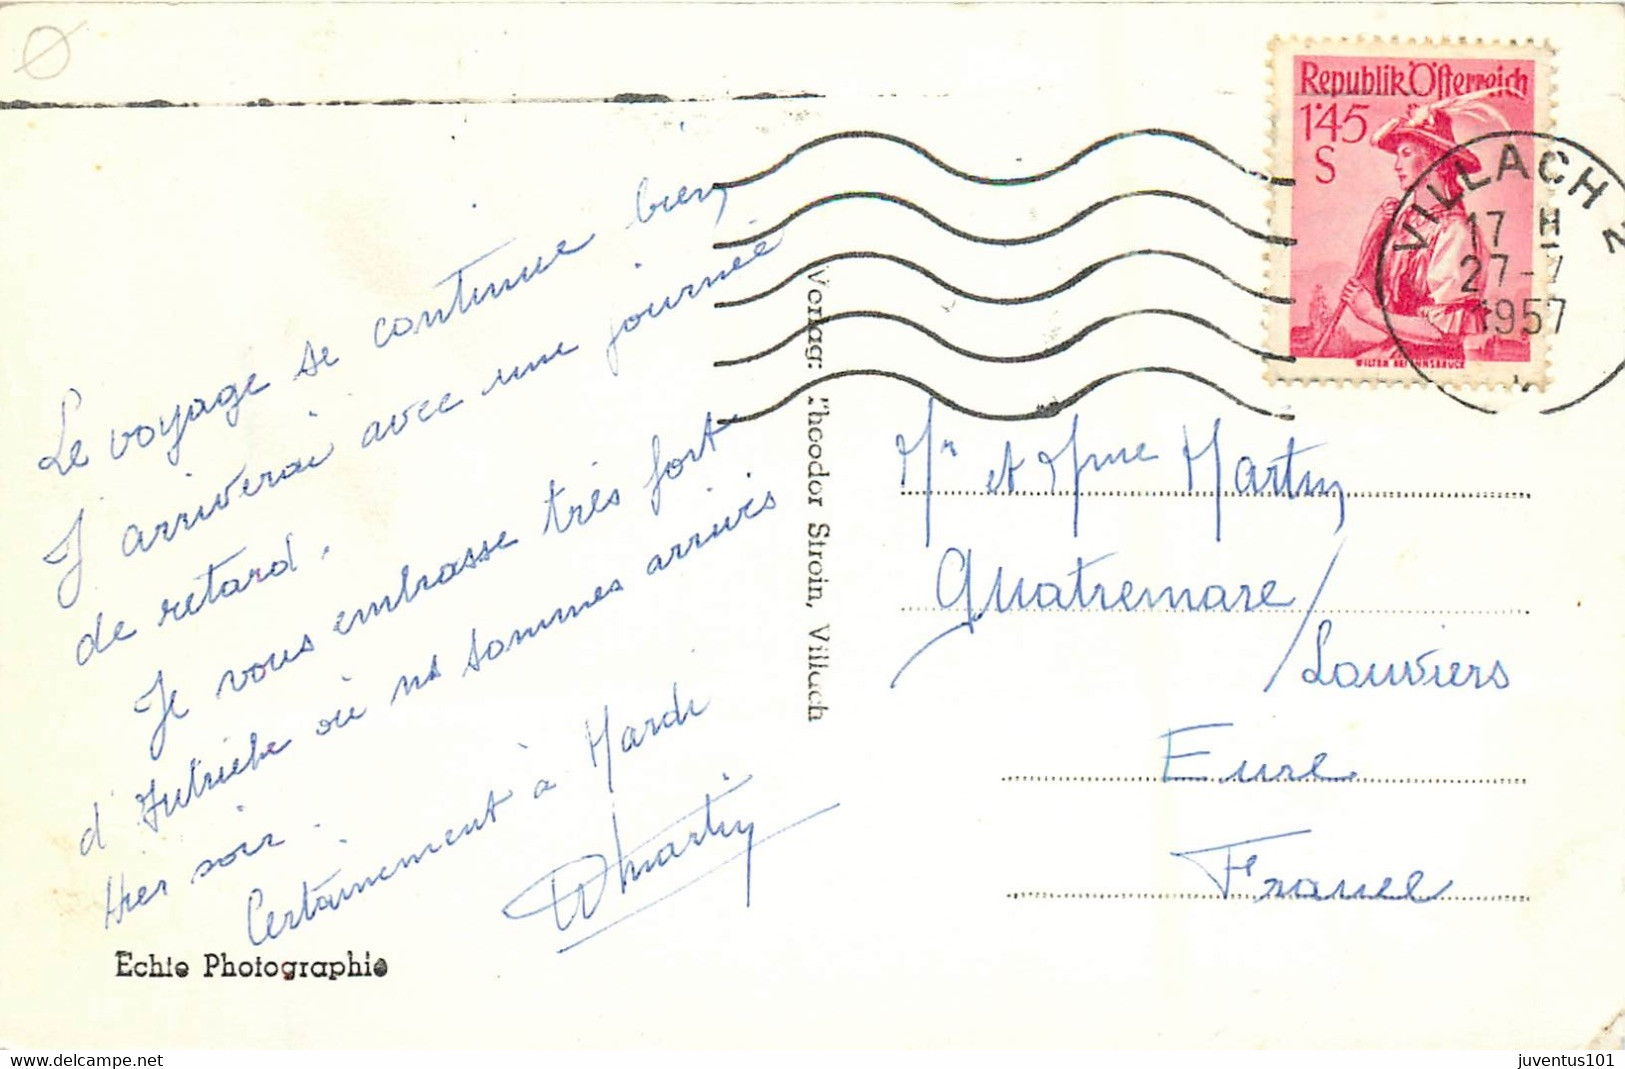 Le voyage se continue bien
J arriverai avec une journée
de retard.
Je vous embrasse très fort
d'Autriche où ns sommes arrivés
Hier soir.
Certainement à Mardi
Martin
Echte Photographie
Verlag: Theodor Stroin, Villach
Republik Österreich
1'45
S
WILTEN BEI INNSBRUCK
VILLACH 2
17 H
27-7
1957
Mr et Mme Martin
Quatremare/
/Louviers
Eure
France
juventus101